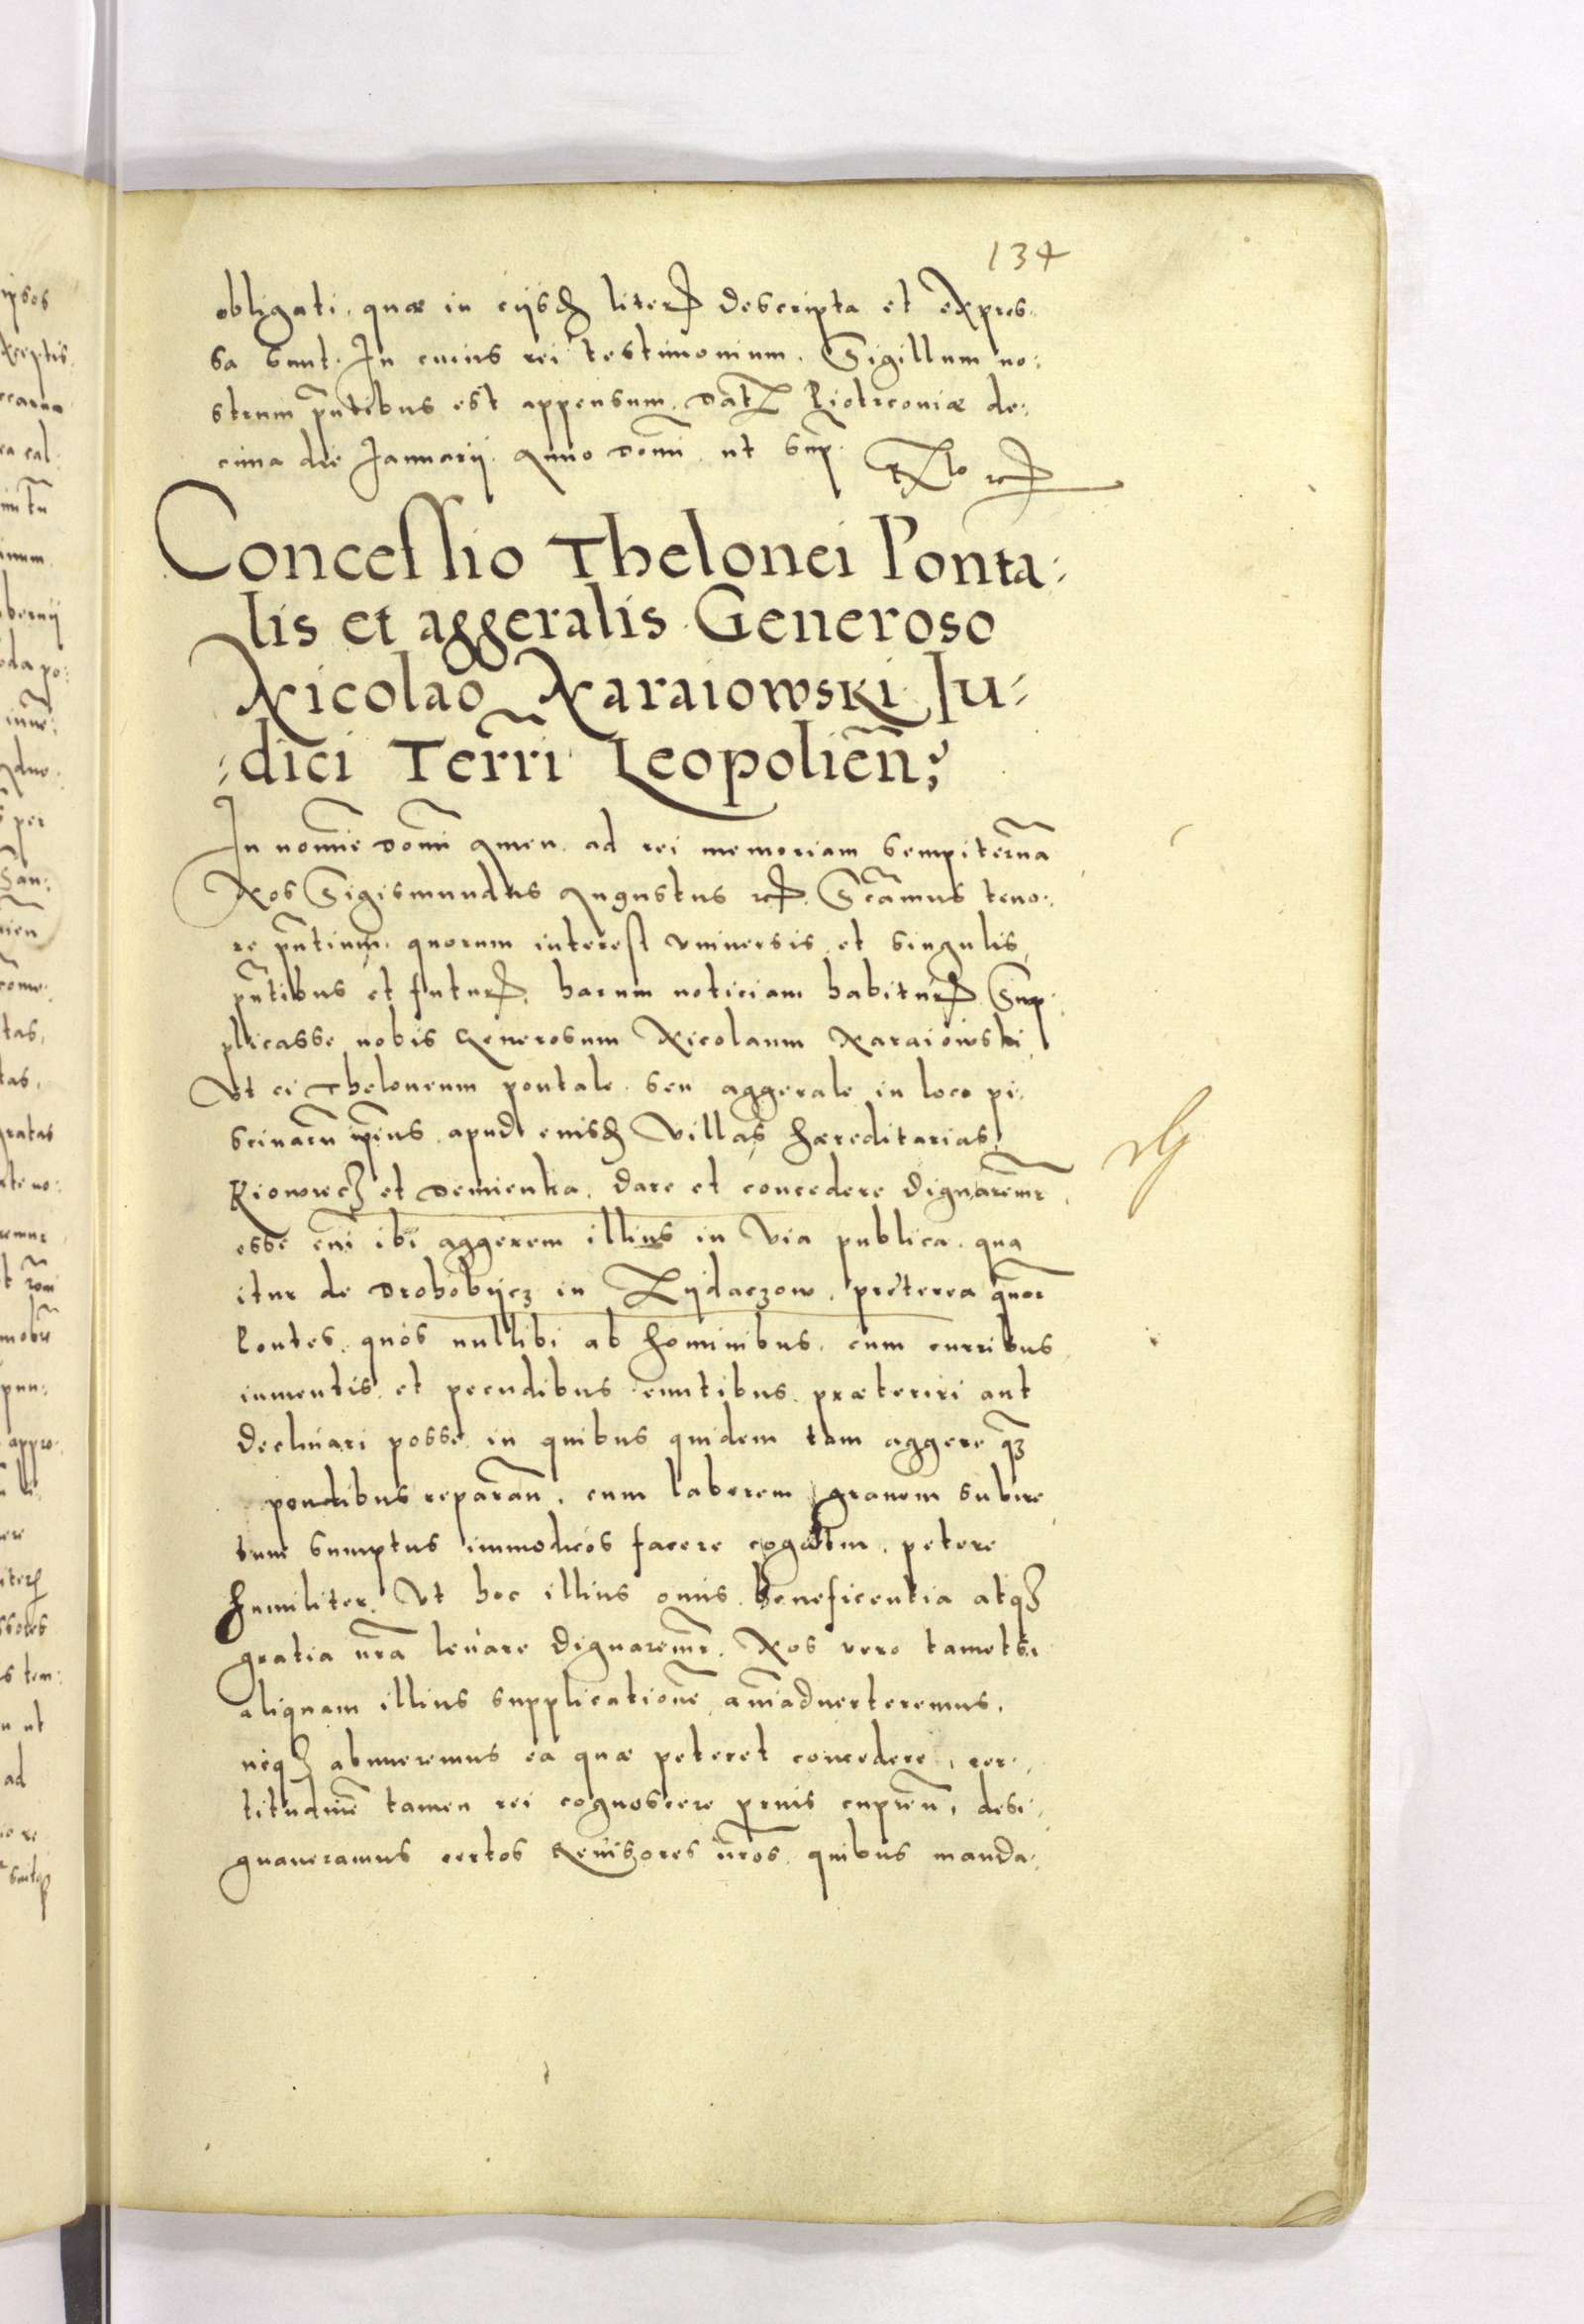 134
obligati, quæ in eijsdẽ literꝭ descripta et expres-
sa sunt. In cuius rei testimonium. Sigillum no:
strum pñtibus est appensum. Datꝭ Piotrcouiæ de:
cima die Januarij. Anno Domĩ ut sup̃.
Concessio Thelonei Ponta:
lis et aggeralis Generoso
Nicolao Naraiowski Ju:
:dici Terrĩ Leopolieñ;
In noĩe Domĩ Amen. ad rei memoriam sempiternã
Nos Sigismundus Augustus rꝭ. Scamus teno:
re pñtium, quorum interest vniuersis et singulis,
pñtibus et futurꝭ, harum noticiam habiturꝭ. Sup:
plicasse nobis Generosum Nicolaum Naraiowski
Vt ei Theloneum pontale seu aggerale in loco pi:
scinarũ ipsius apud eiusdẽ Villas hæreditarias,
Kiowiecz et Demienka. dare et concedere dignaremr̃,
esse enĩ ibi aggerem illius in Via publica qua
itur de Drohobijcz in Zijdaczow. præterea quor
Pontes. quos nullibi ab hominibus. cum curribus
iumentis et pecudibus euntibus præteriri aut
declinari posse. in quibus quidem tam aggere qz
pontibus reparañ. cum laborem grauem subire
tum sumptus immodicos facere cogatur. petere
humiliter. Vt hoc illius onus beneficentia atqz
gratia nrã leuare dignaremr̃. Nos vero tametsi
aliquam illius supplicationẽ aniaduerteremus,
neqz abnueremus ea quæ peteret concedere, cer:
titudinẽ tamen rei cognoscere prius cupieñ, desi:
gnaueramus certos Reuisores nrõs. quibus manda: